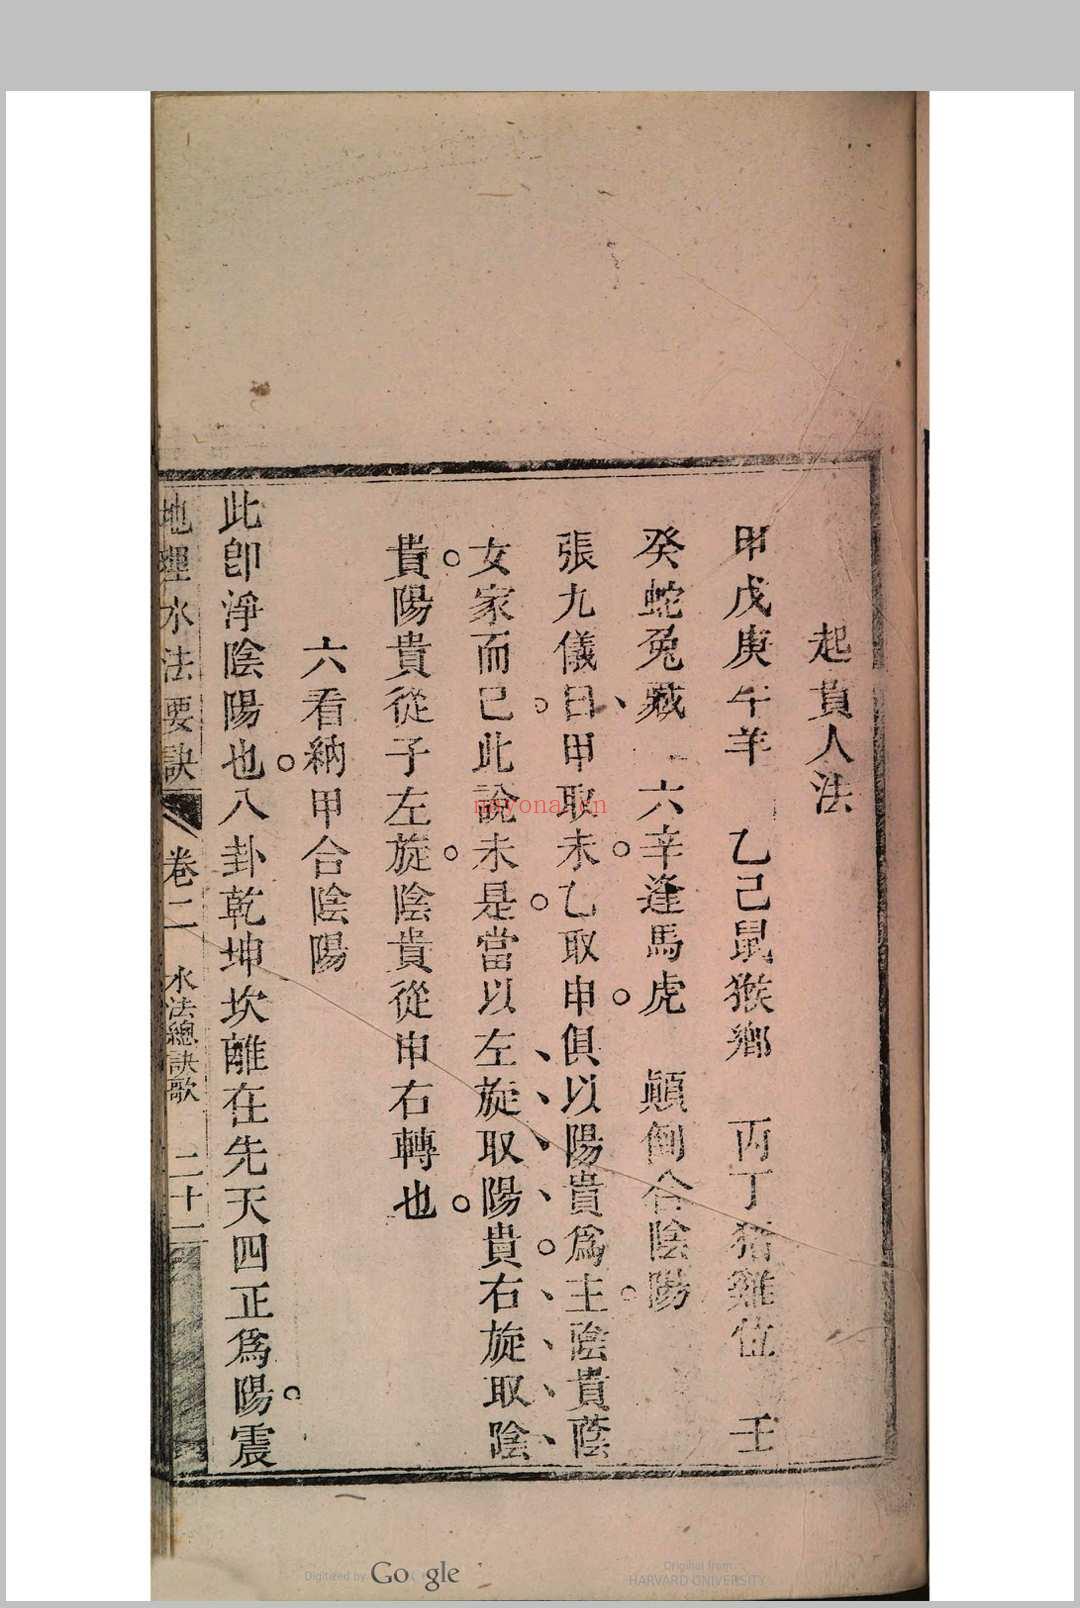 起貴人法
甲戊庚牛羊　乙己鼠猴鄉　丙丁猪雞位　壬
癸蛇兔藏　六辛逢馬虎　顛倒合陰陽
張九儀曰甲取未乙取申俱以陽貴爲主陰貴蔭
女家而已此說未是當以左旋取陽貴右旋取陰
貴陽貴從子左旋陰貴從申右轉也
六看納甲合陰陽
此卽淨陰陽也八卦乾坤坎離在先天四正爲陽震
地理水法要訣　卷二　水法總訣歌　二十一
nayona.cn
Digitized by Google
Original from
HARVARD UNIVERSITY